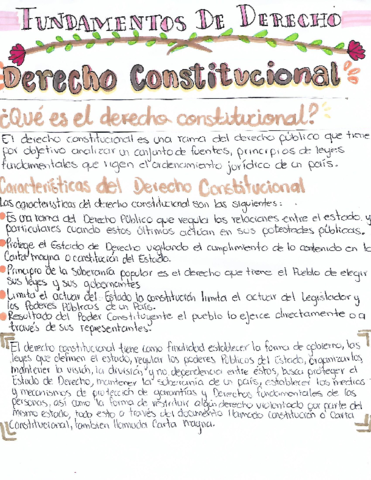 FUNDAMENTOS DE DERECHO
Derecho Constitucional
¿Qué es el derecho constitucional?
El derecho constitucional es una rama del derecho público que tiene
por objetivo analizar un conjunto de fuentes, principios de leyes
fundamentales que rigen el ordenamiento jurídico de un país.
Características del Derecho Constitucional
Las características del derecho constitucional son las siguientes:
Es un rama del Derecho Público que regula las relaciones entre el estado, y
particulares cuando estos últimos actuan en sus potestades públicas.
Protege el Estado de Derecho vigilando el cumplimiento de lo contenido en la
Carta magna o constitución del Estado.
Principio de la soberanía popular es el derecho que tiene el Pueblo de elegir
sus leyes y sus gobernantes
Limita el actuar del Estado la constitución limita el actuar del Legislador y
los Poderes Públicos de un País.
Resultado del Poder Constituyente el pueblo lo ejerce directamente o a
través de sus representantes.
El derecho constitucional tiene como finalidad establecer la forma de gobierno, las
leyes que definen el estado, regular los poderes Públicos del Estado, organizarlos
mantener la visión, la división y no dependencia entre éstos, busca proteger el
Estado de Derecho, mantener la soberanía de un país, establecer los medios
y mecanismos de protección de garantías y Derechos fundamentales de las
personas, así como la forma de restituir algún derecho violentado por parte del
mismo estado, todo esto a través del documento llamado constitución o Carta
Constitucional, tambien llamada Carta magna.